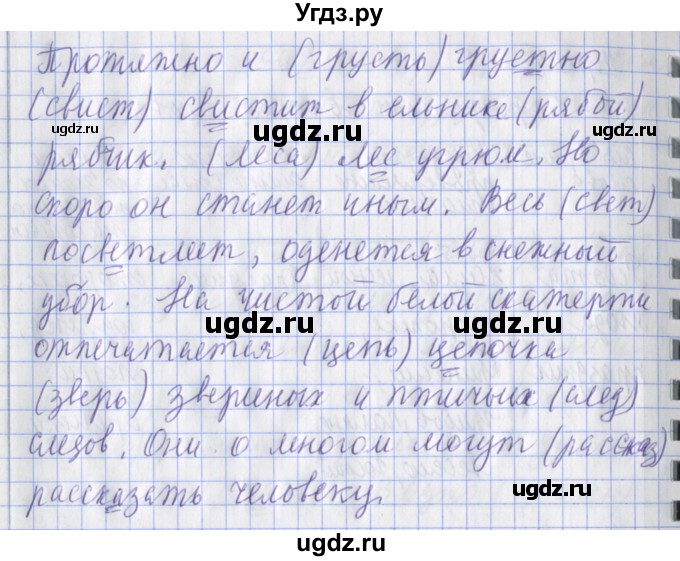 Угдз.ру
Протяжно и (грусть) грустно
(свист) свистит в ельнике (рябой)
ugdz.ru ugdz.ru ugdz.ru
рябчик. (Леса) Лес угрюм. Но
скоро он станет иным. Весь (свет)
ugdz.ru ugdz.ru
посветлеет, оденется в снежный
убор. На чистой белой скатерти
ugdz.ru ugdz.ru
отпечатается (цепь) цепочка
(зверь) звериных и птичьих (след)
ugdz.ru
следов. Они о многом могут (рассказ)
рассказать человеку.
ugdz.ru ugdz.ru
ugdz.ru